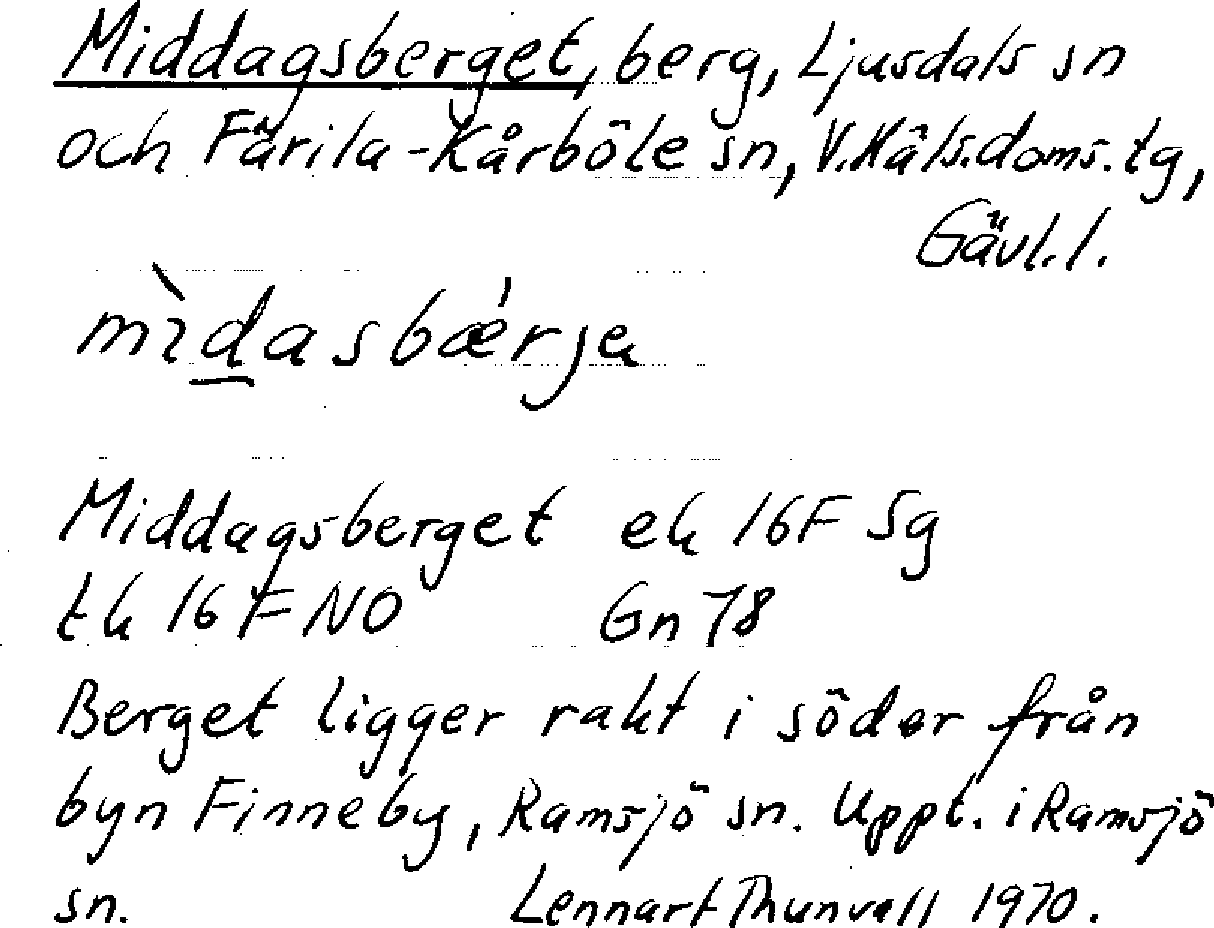 Middagsberget, berg, Ljusdals sn
och Färila-Kårböle sn, V.Häls.doms.tg,
Gävl.l.
mìdasbǽrjɐ
Middagsberget ek 16F 5g
tk 16 F NO Gn 78
Berget ligger rakt i söder från
byn Finneby, Ramsjö sn. Uppt. i Ramsjö
sn. Lennart Thunvall 1970.